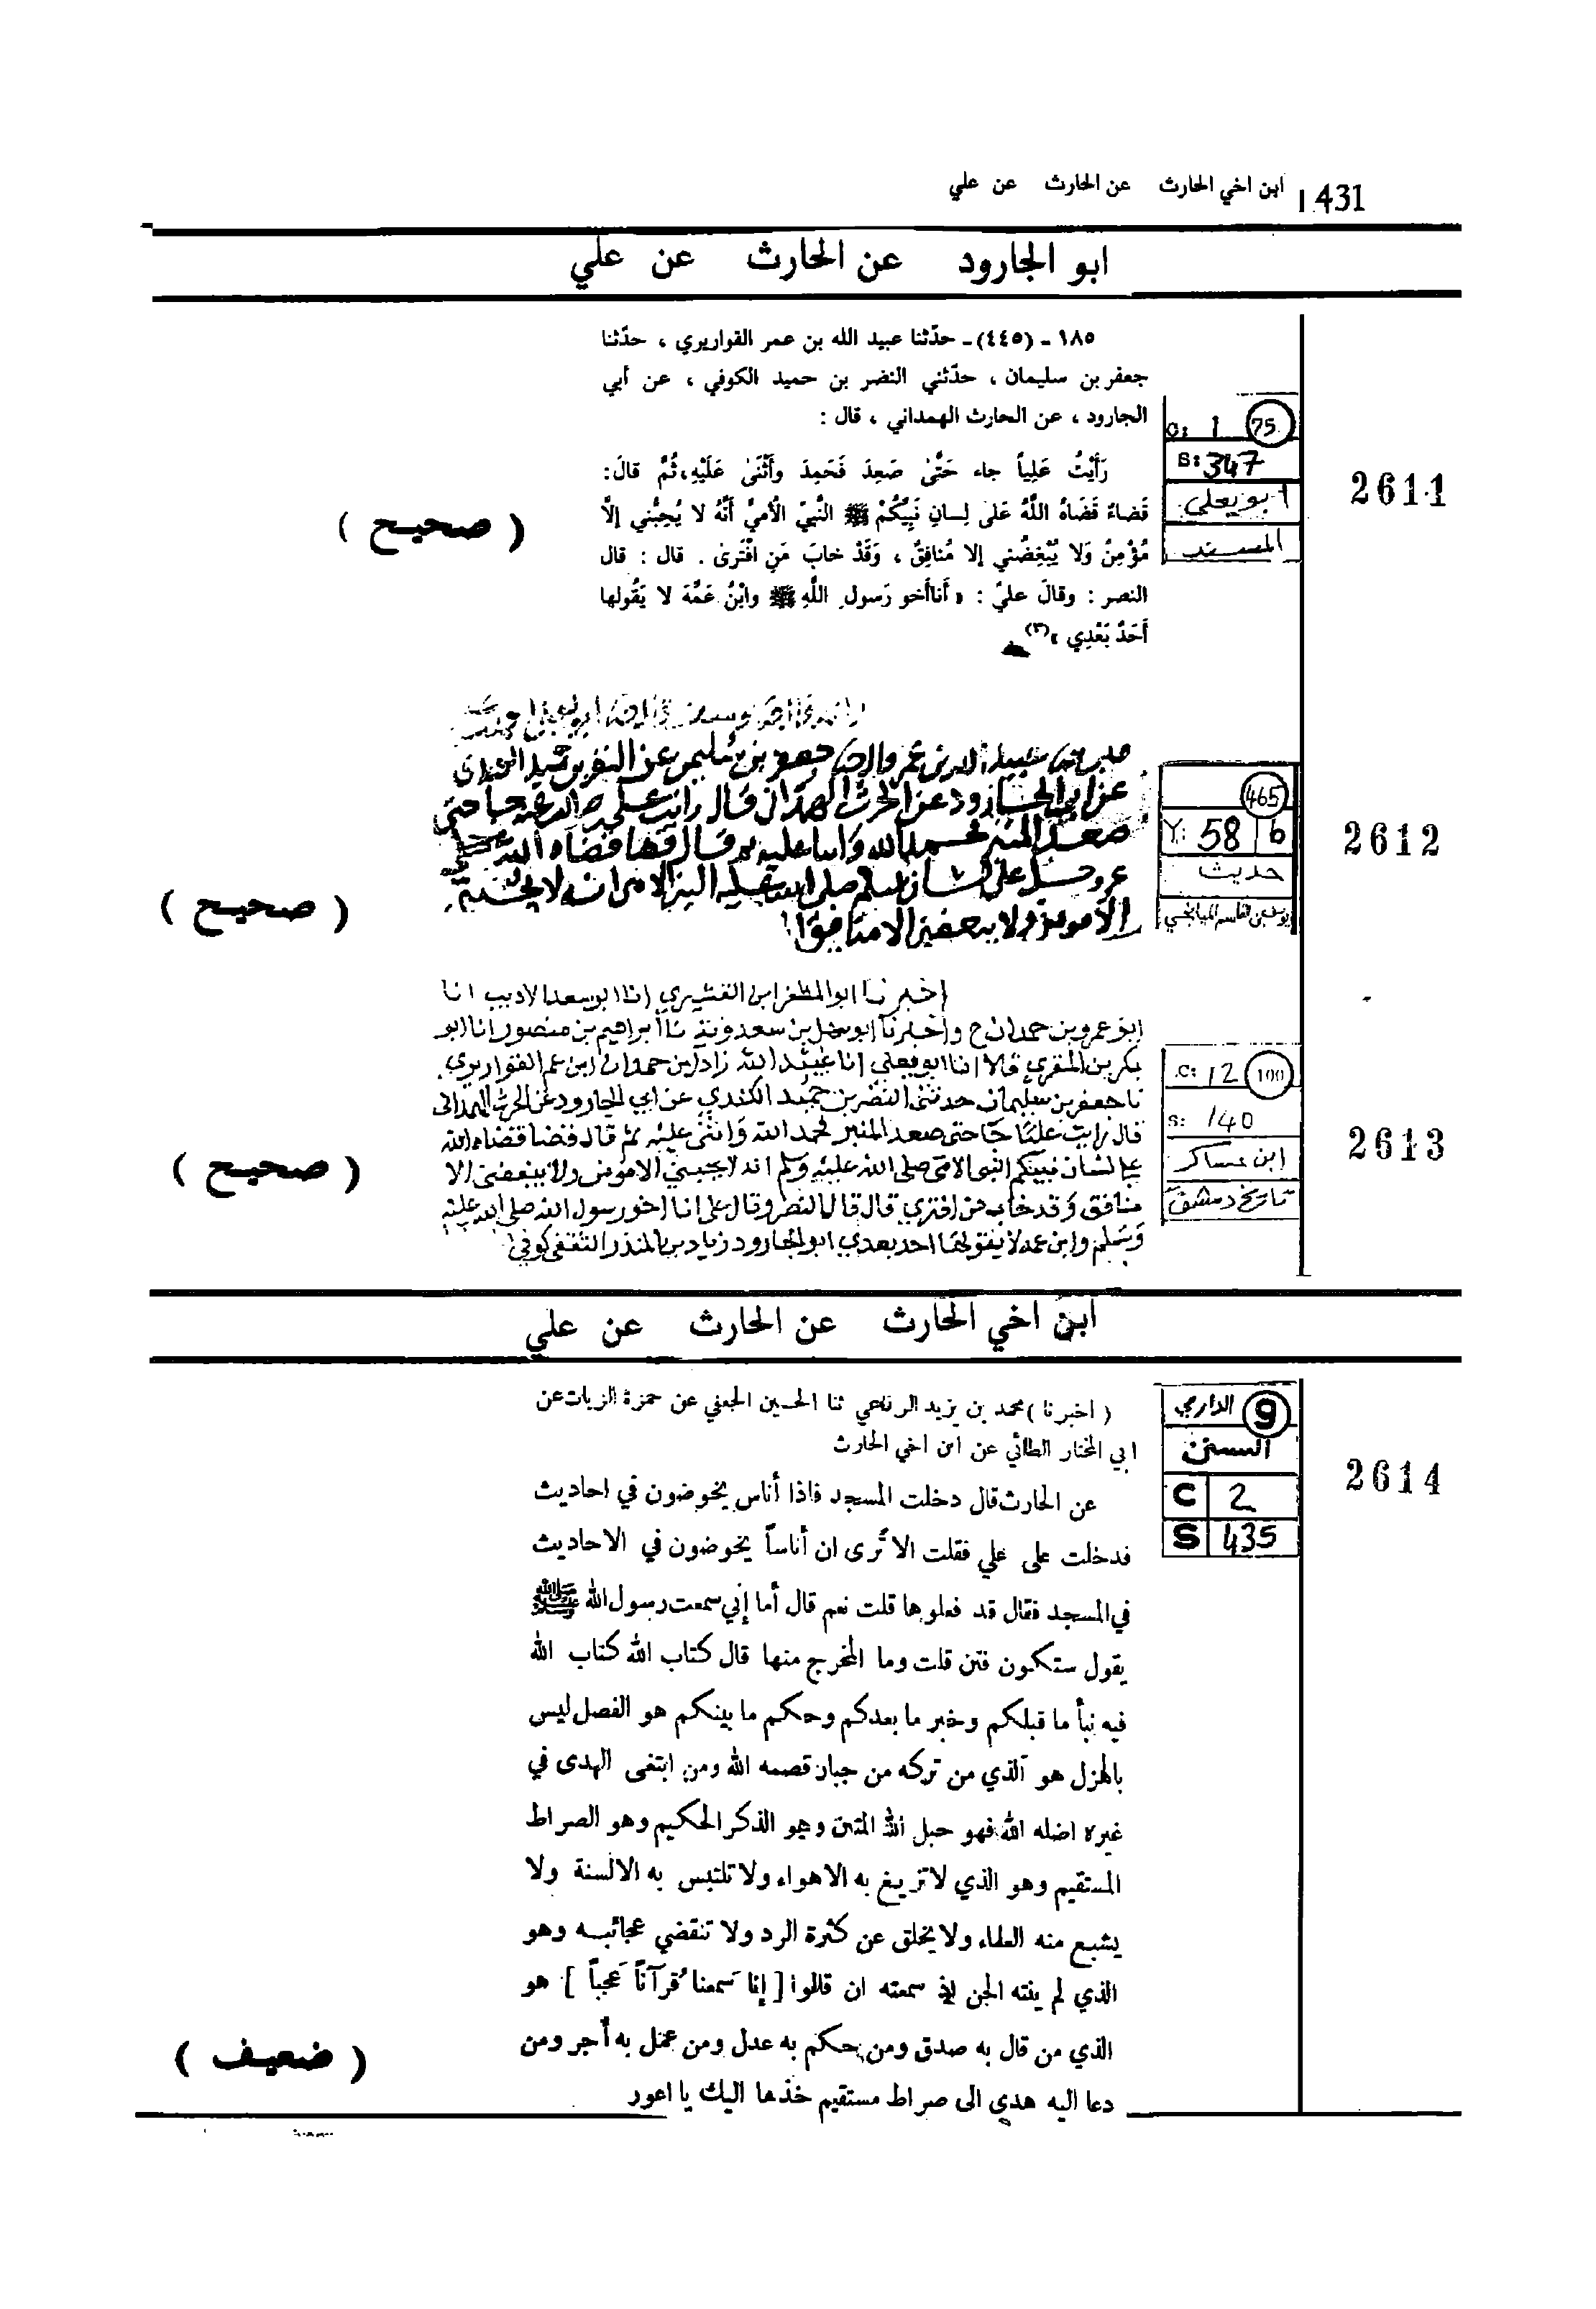 1431 ابن اخي الحارث عن الحارث عن علي
ابو الجارود عن الحارث عن علي
١٨٥ - (٤٤٥) - حدّثنا عبيد الله بن عمر القواريري ، حدّثنا
جعفر بن سليمان ، حدّثني النضر بن حميد الكوفي ، عن أبي
الجارود ، عن الحارث الهمداني ، قال :
رَأَيْتُ عَلِياً جاء حَتَّىٰ صَعِدَ فَحَمِدَ وأَثْنَىٰ عَلَيْهِ، ثُمَّ قالَ:
قَضاءً قَضَاهُ اللَّهُ عَلَى لِسانِ نَبِيِّكُمْ ﷺ النَّبِيِّ الْأُمِّيِّ أَنَّهُ لا يُحِبُّني إلَّا
مُؤْمِنٌ وَلا يُبْغِضُني إلا مُنافِقٌ ، وَقَدْ خابَ مَنِ افْتَرىٰ . قال : قال
النضر : وقالَ عليّ : « أَنا أَخو رَسول اللَّهِ ﷺ وابْنُ عَمِّهِ لا يَقُولها
أَحَدٌ بَعْدِي »(٣)
C: 1 75
S: 347
ابو يعلى
المسند
2611
( صحيح )
عن ابي الجارود عن الحرث الهمداني قال رايت علي
الا مومن ولا يبغضني الا منافق
465
Y: 58 b
حديث
يوسف بن القاسم الميانجي
2612
( صحيح )
اخبرنا ابو المظفر ابن القشيري انا ابو سعد الاديب انا
ابو عمرو بن حمدان ح واخبرنا ابو سهل بن سعدويه نا ابراهيم بن منصور انا ابو
بكر بن المقري قالا انا ابو يعلي انا عبيد الله زاد ابن حمدان ابن عمر القواريري
نا جعفر بن سليمان حدثني النضر بن حميد الكندي عن ابي الجارود عن الحرث الهمداني
قال رايت عليا جا حتى صعد المنبر فحمد الله واثنى عليه ثم قال قضا قضاه الله
على لسان نبيكم النبي الامي صلى الله عليه وسلم انه لا يحبني الا مومن ولا يبغضني الا
منافق وقد خاب من افتري قال قال النضر وقال على انا اخو رسول الله صلى الله عليه
وسلم وابن عمه لا يقولها احد بعدي ابو الجارود زياد بن المنذر الثقفي كوفي
C: 12 100
S: 140
ابن عساكر
تاريخ دمشق
2613
( صحيح )
ابن اخي الحارث عن الحارث عن علي
( اخبرنا ) محمد بن يزيد الرفاعي ثنا الحسين الجعفي عن حمزة الزيات عن
ابي المختار الطائي عن ابن اخي الحارث
عن الحارث قال دخلت المسجد فاذا أناس يخوضون في احاديث
فدخلت على علي فقلت الا تَرى ان أناساً يخوضون في الاحاديث
في المسجد فقال قد فعلوها قلت نعم قال أما إني سمعت رسول الله ﷺ
يقول ستكون فتن قلت وما المخرج منها قال كتاب الله كتاب الله
فيه نبأ ما قبلكم وخبر ما بعدكم وحكم ما بينكم هو الفصل ليس
بالهزل هو الذي من تركه من جبار قصمه الله ومن ابتغى الهدى في
غيره اضله الله فهو حبل الله المتين وهو الذكر الحكيم وهو الصراط
المستقيم وهو الذي لا تزيغ به الاهواء ولا تلتبس به الالسنة ولا
يشبع منه العلماء ولا يخلق عن كثرة الرد ولا تنقضي عجائبه وهو
الذي لم ينته الجن إذ سمعته ان قالوا [ إنا سَمعنا قُرآناً عَجباً ] هو
الذي من قال به صدق ومن حكم به عدل ومن عمل به أجر ومن
دعا اليه هدي الى صراط مستقيم خذها اليك يا اعور
9 الدارمي
السنن
C 2
S 435
2614
( ضعيف )